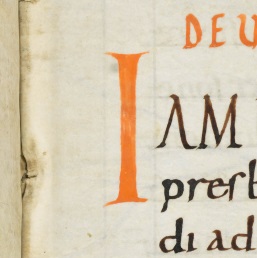 DEU
IAM
presb
di ad